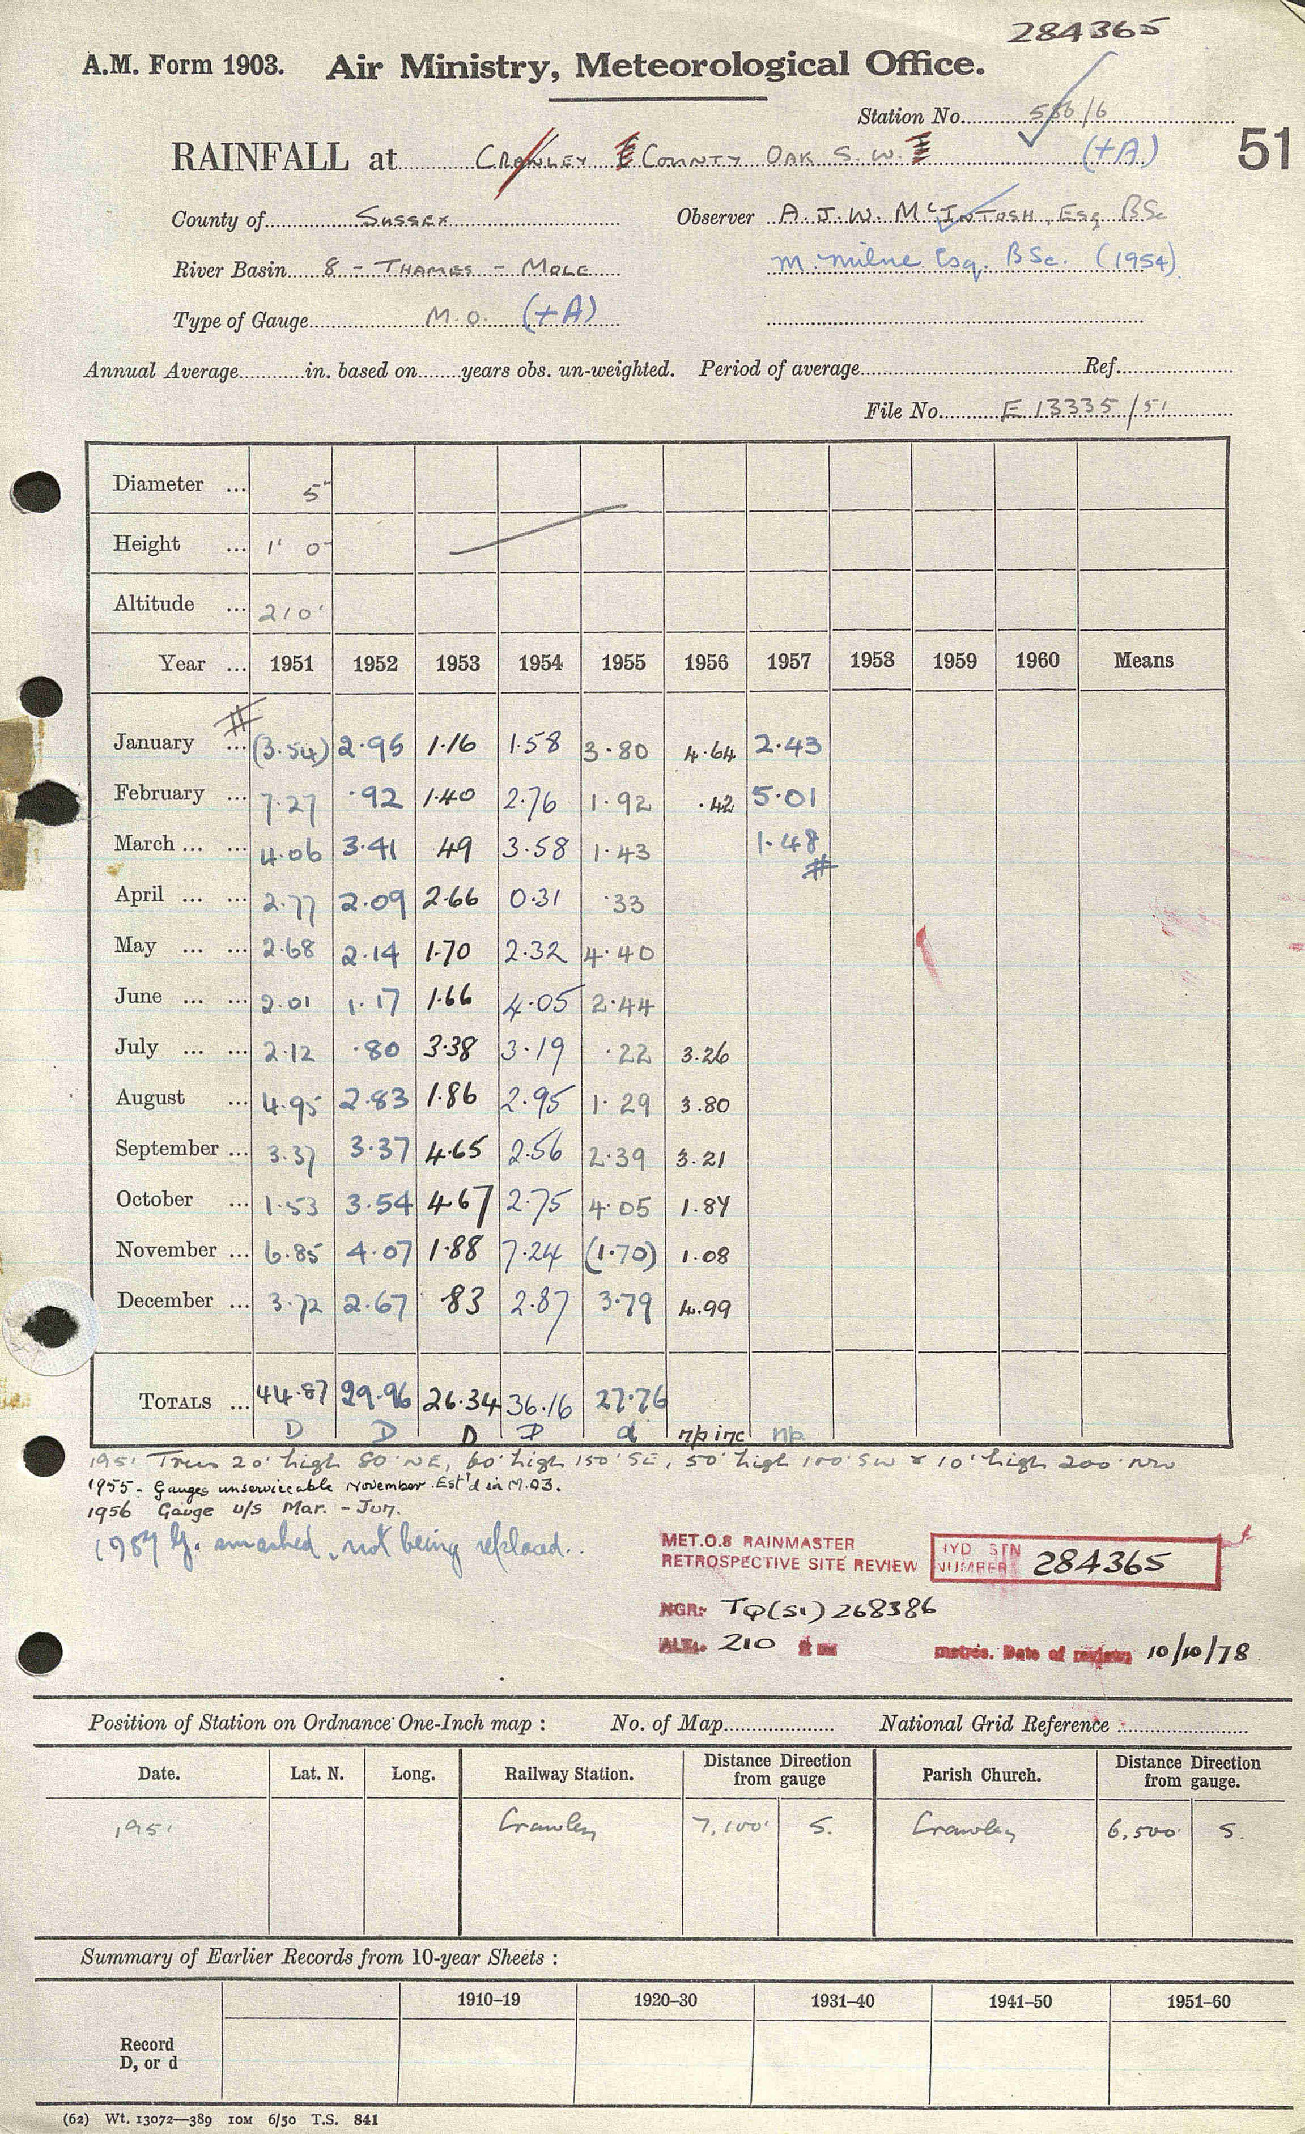 284365
A.M. Form 1903. Air Ministry, Meteorological Office.
Station No. 586/6
RAINFALL at CRAWLEY COUNTY OAK S.W. (+A) 51
County of SUSSEX Observer A.J.W. McINTOSH, Esq BSc
River Basin 8 - THAMES - MOLE M. Milne Esq. BSc. (1954)
Type of Gauge M.O. (+A)
Annual Average in. based on years obs. un-weighted. Period of average Ref.
File No. E 13335/51
Diameter ... 5"
Height ... 1' 0"
Altitude ... 210'
Year ... 1951 1952 1953 1954 1955 1956 1957 1958 1959 1960 Means
January ... (3.54) 2.95 1.16 1.58 3.80 4.64 2.43
February ... 7.27 .92 1.40 2.76 1.92 .42 5.01
March ... ... 4.06 3.41 .49 3.58 1.43 1.48
April ... ... 2.77 2.09 2.66 0.31 .33
May ... ... 2.68 2.14 1.70 2.32 4.40
June ... ... 2.01 1.17 1.66 4.05 2.44
July ... ... 2.12 .80 3.38 3.19 .22 3.26
August ... 4.95 2.83 1.86 2.95 1.29 3.80
September ... 3.37 3.37 4.65 2.56 2.39 3.21
October ... 1.53 3.54 4.67 2.75 4.05 1.84
November ... 6.85 4.07 1.88 7.24 (1.70) 1.08
December ... 3.72 2.67 .83 2.87 3.79 4.99
TOTALS ... 44.87 29.96 26.34 36.16 27.76
D D D D d np inc np
1951 Trees 20' high 80' NE, 60' high 150' SE, 50' high 100' SW & 10' high 200' NW
1955 - Gauges unserviceable November. Est'd in M.O3.
1956 Gauge u/s Mar. - Jun.
1957 G. smashed, not being replaced.
MET.O.8 RAINMASTER
RETROSPECTIVE SITE REVIEW
HYD STN NUMBER 284365
NGR: TQ(51) 268386
ALT. 210 ft metres. Date of review: 10/10/78
Position of Station on Ordnance One-Inch map : No. of Map National Grid Reference
Date. Lat. N. Long. Railway Station. Distance Direction from gauge Parish Church. Distance Direction from gauge.
1951 Crawley 7,100' S. Crawley 6,500' S.
Summary of Earlier Records from 10-year Sheets :
1910–19 1920–30 1931–40 1941–50 1951–60
Record
D, or d
(62) Wt. 13072—389 10M 6/50 T.S. 841